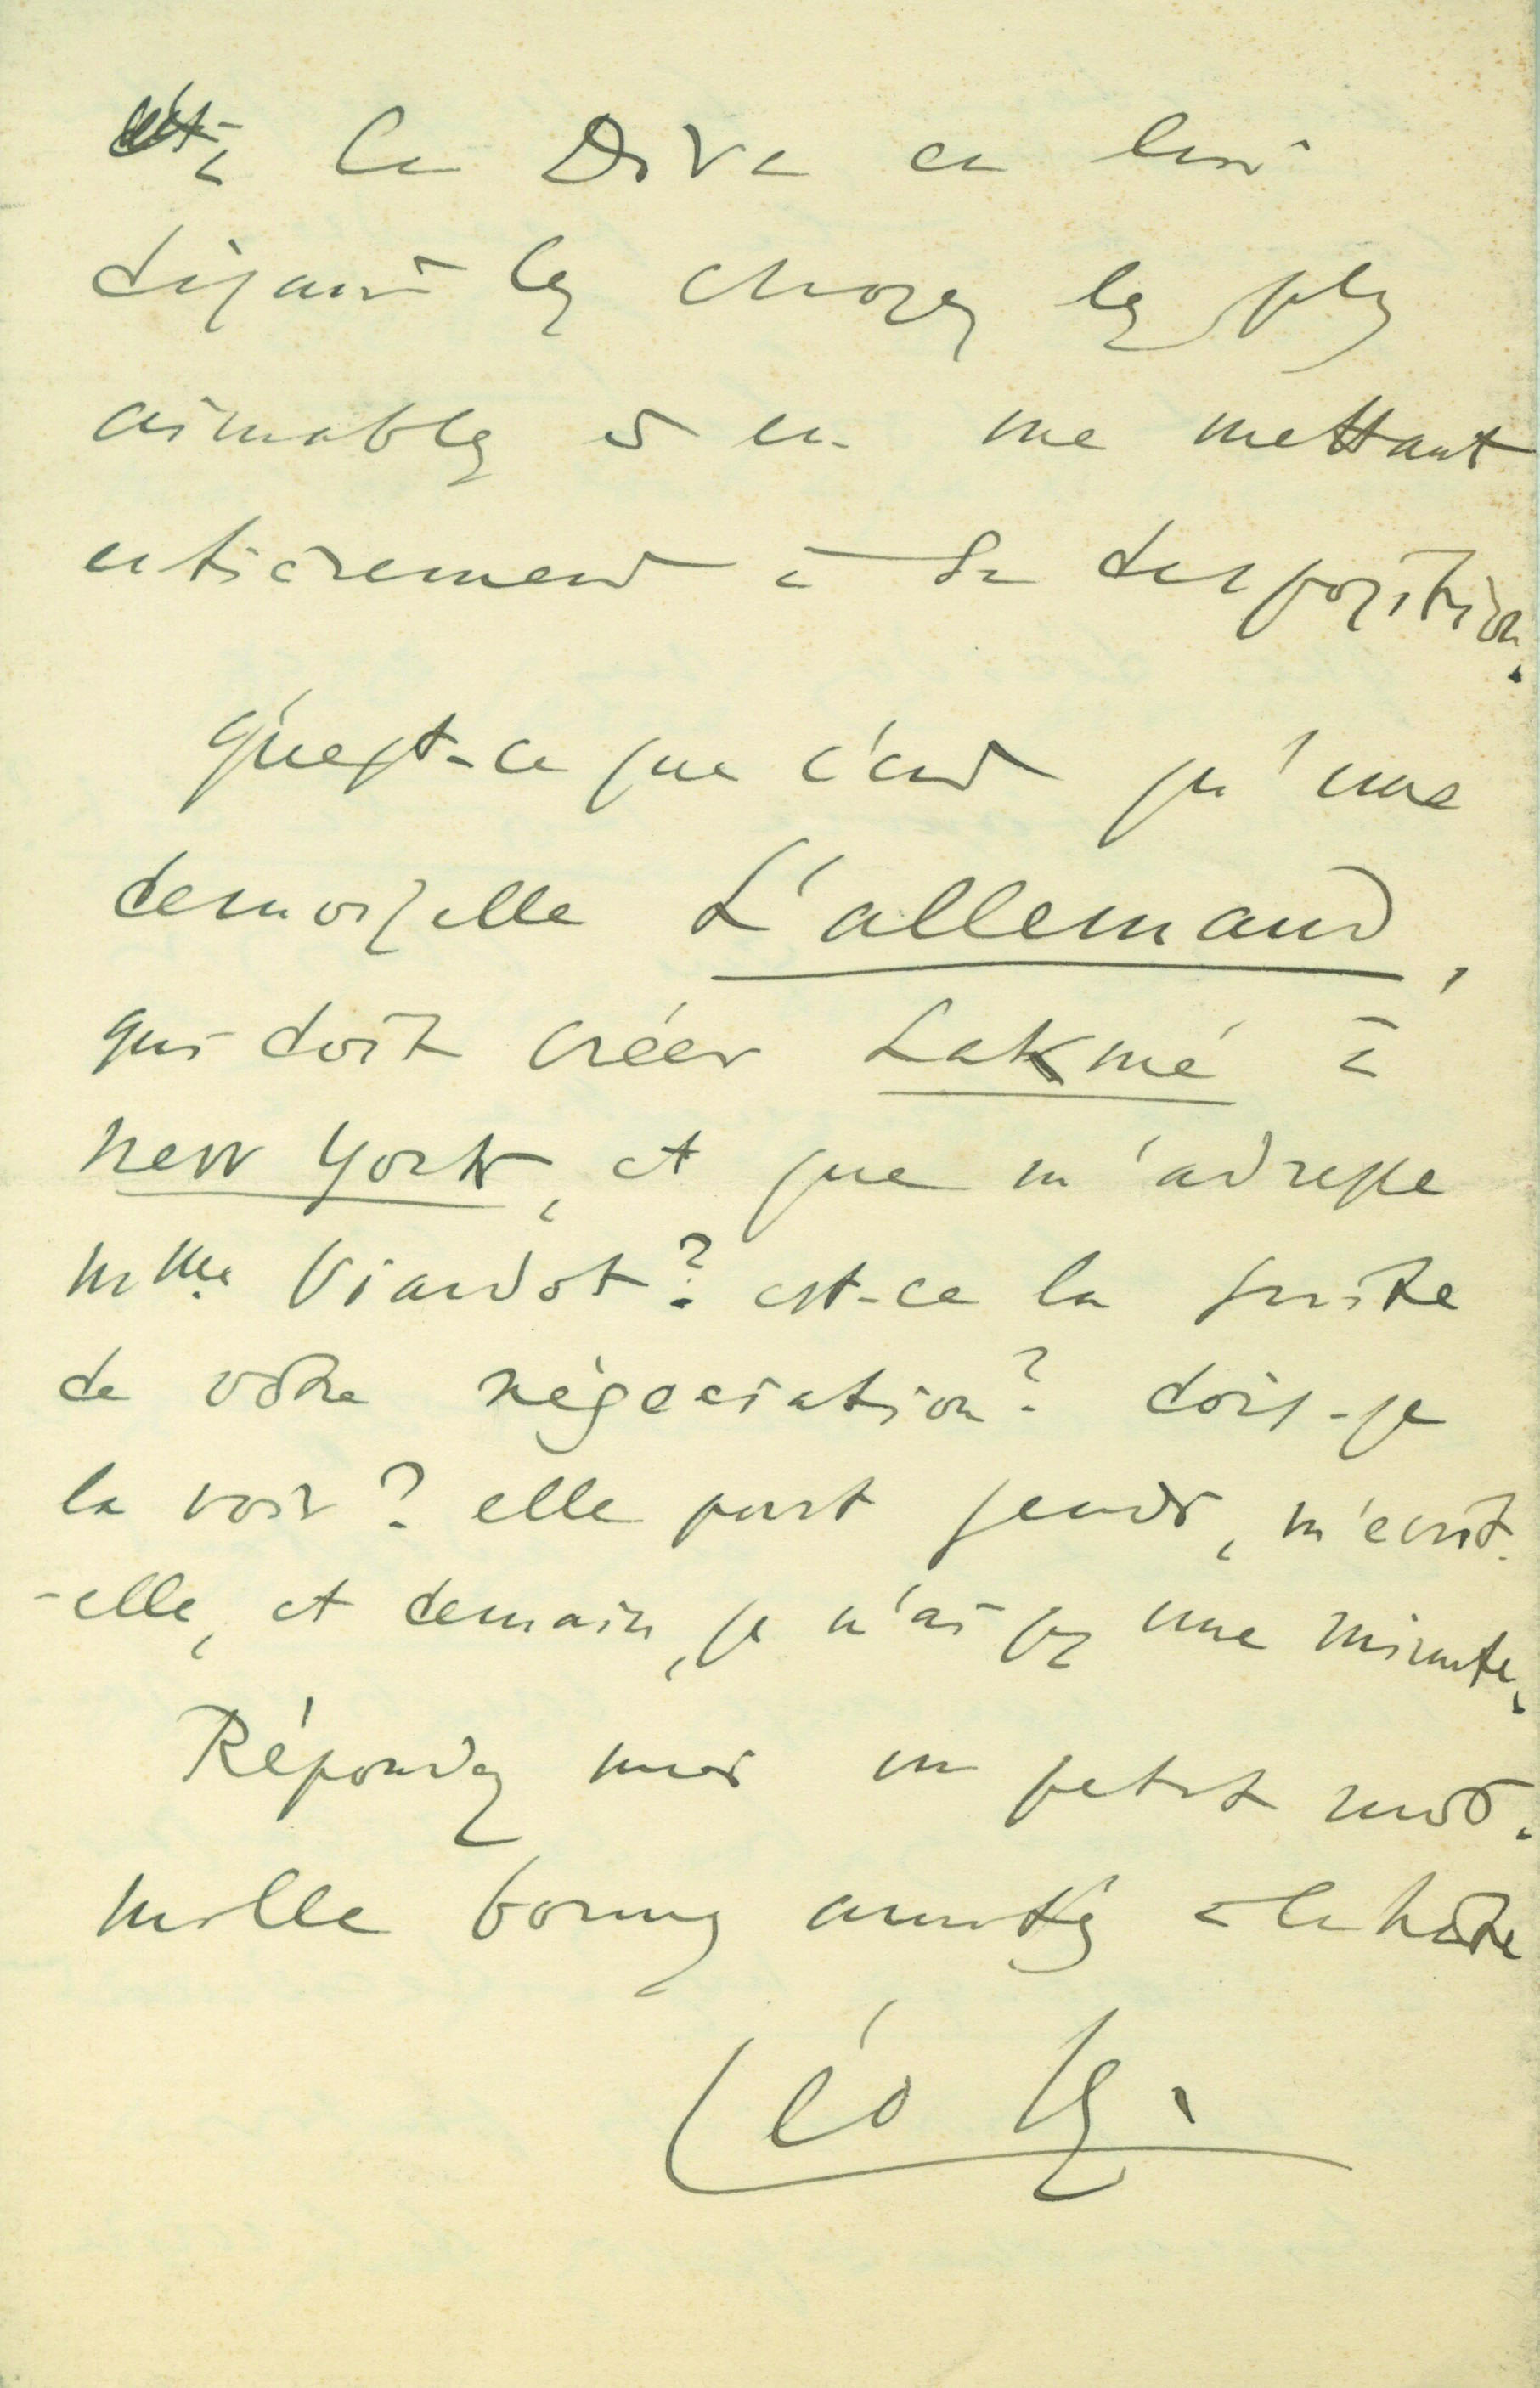 à la Diva en lui
disant les choses les plus
aimables et en me mettant
entièrement à sa disposition.
Qu'est-ce que c'est qu'une
demoiselle L'allemand,
qui doit créer Lakmé à
New York, et que m'adresse
Mme Viardot? est-ce la suite
de votre négociation? dois-je
la voir? elle part jeudi, m'écrit-
-elle, et demain, je n'ai pas une minute.
Répondez moi un petit mot.
Mille bonnes amitiés à la hâte
Léo